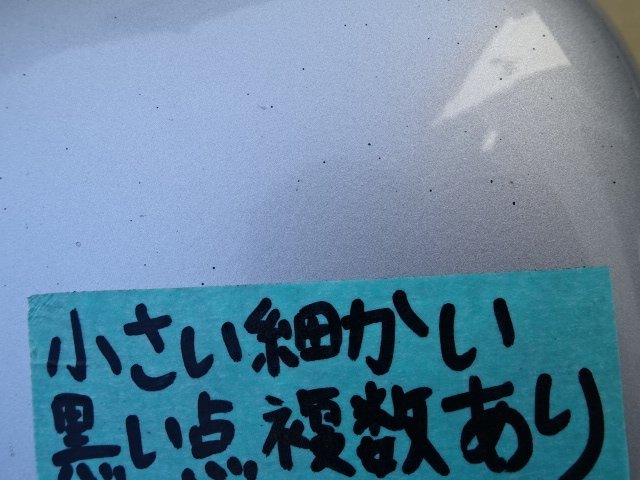 小さい細かい
黒い点複数あり